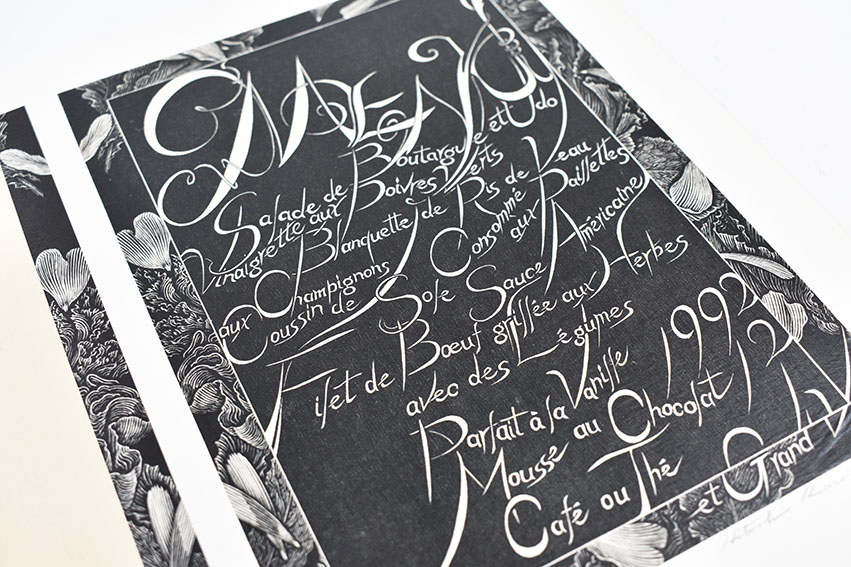 MENU
Salade de Boutargue et Udo
Vinaigrette aux Poivres Verts
Blanquette de Ris de Veau
aux Champignons Consommé aux Paillettes
Coussin de Sole Sauce Américaine
Filet de Bœuf grillée aux Herbes
avec des Légumes
Parfait à la Vanille 1992
Mousse au Chocolat 12
Café ou Thé et Grand